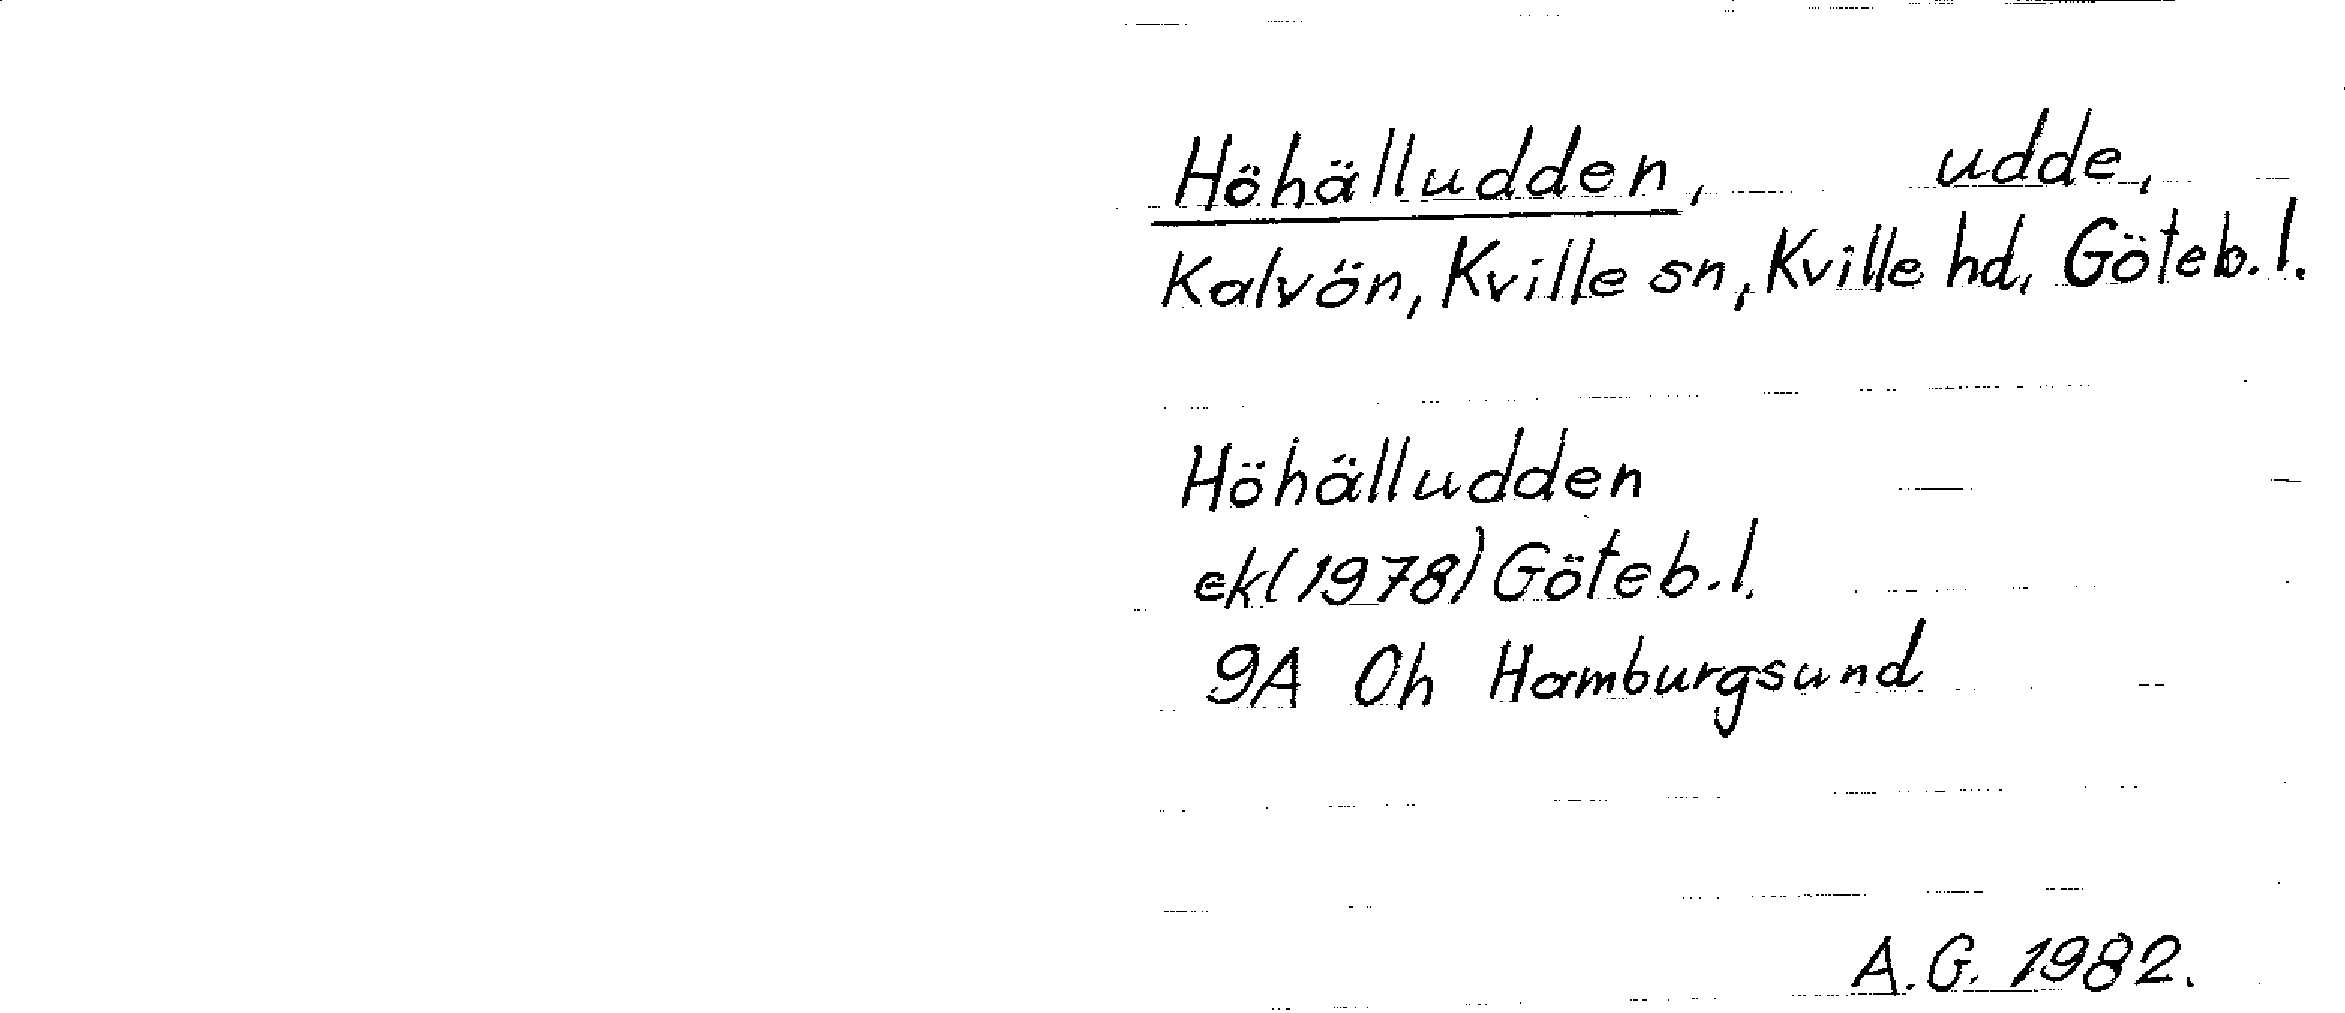 Höhälludden, udde,
Kalvön, Kville sn, Kville hd, Göteb. l.
Höhälludden
ek (1978) Göteb. l.
9A 0h Hamburgsund
A.G. 1982.